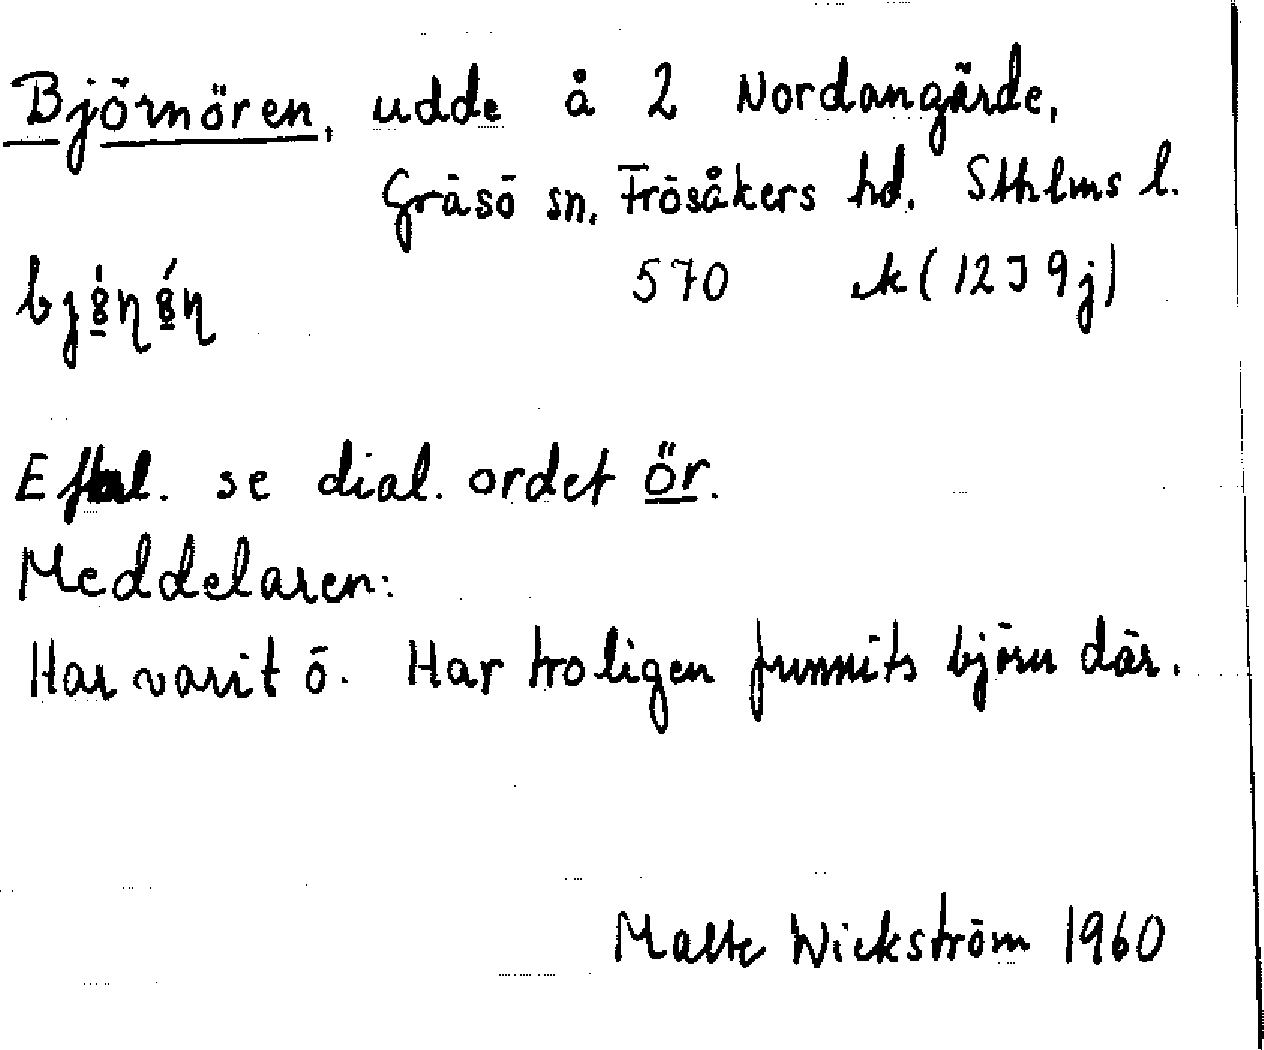 Björnören, udde å 2 Nordangärde,
Gräsö sn. Frösåkers hd. Sthlms l.
570 ek (12 J 9 j)
Efterl. se dial. ordet ör.
Meddelaren:
Har varit ö. Har troligen funnits björn där.
Malte Wickström 1960